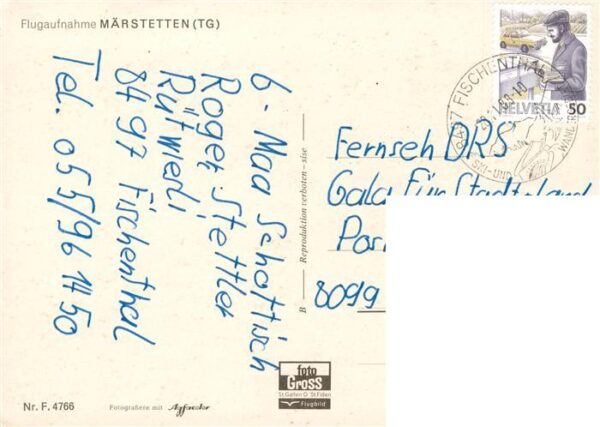 Flugaufnahme MÄRSTETTEN (TG)
6 - Maa Schottisch
Roger Stettler
Rütwiedi
8497 Fischenthal
Tel. 055/96 14 50
B — Reproduktion verboten - sise
HELVETIA 50
8497 FISCHENTHAL
SKI- UND WANDER
Fernseh DRS
Gala für Stadt + Land
Pos
8099
foto
GROSS
St. Gallen O St. Fiden
Flugbild
Nr. F. 4766
Fotografiere mit Agfacolor